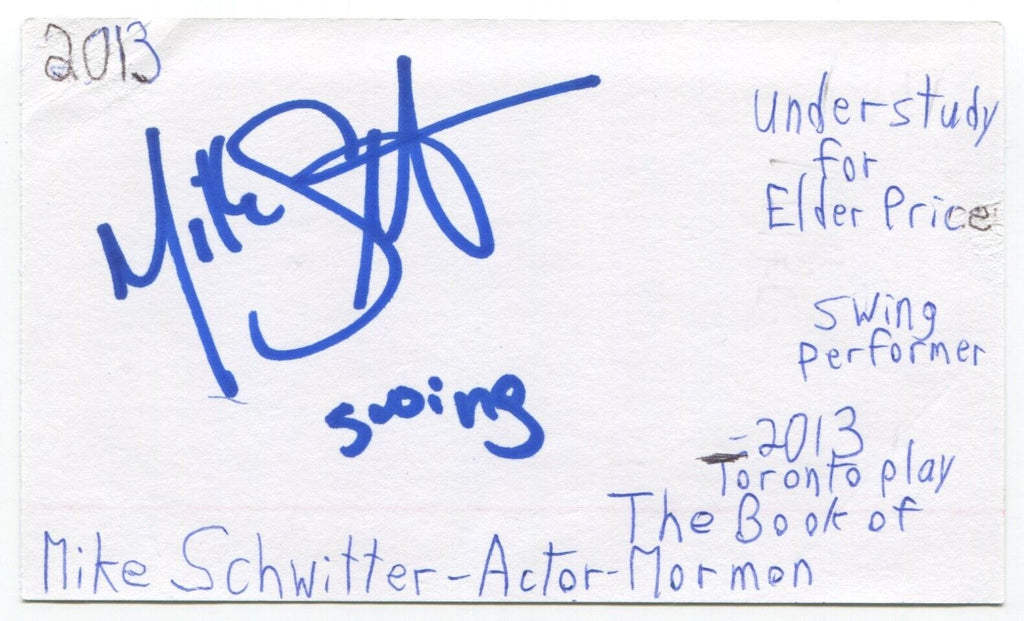 2013
Mike
swing
Understudy
for
Elder Price
swing
performer
-2013
Toronto play
The Book of
Mike Schwitter-Actor-Mormon